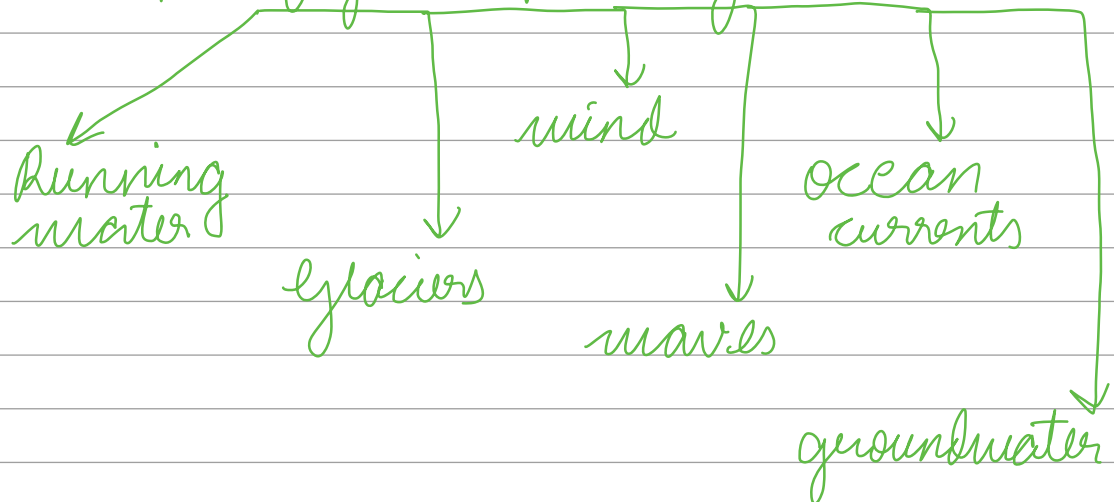 Running
water
Glaciers
wind
waves
ocean
currents
groundwater